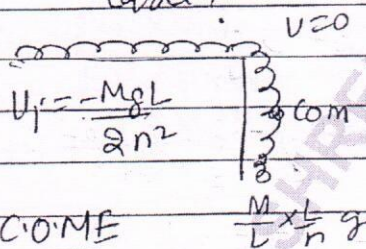 U=0
U₁ = -MgL / 2n²
com
C.O.ME M/L × L/n g
SHRE